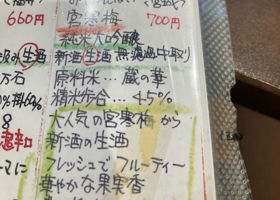 660円
宮寒梅 700円
純米大吟醸
生酒
新酒生酒 無濾過中取り
万石
原料米… 蔵の華
精米歩合… 45%
60%
8
大人気の宮寒梅から
鬼辛口
新酒の生酒
マに
フレッシュでフルーティー
華やかな果実香